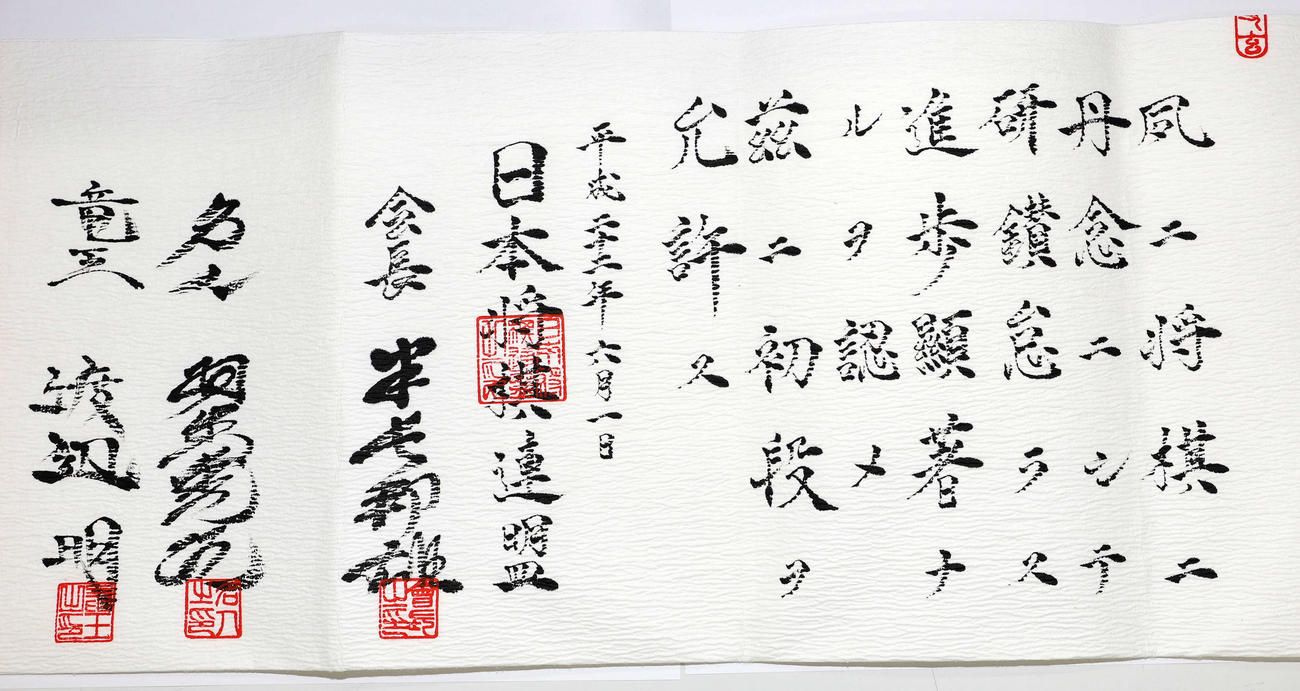 夙ニ将棋ニ
丹念ニシテ
研鑽怠ラス
進歩顯著ナ
ルヲ認メ
茲ニ初段ヲ
允許ス
平成二十二年六月一日
日本将棋連盟
会長 米長邦雄
名人 羽生善治
竜王 渡辺明